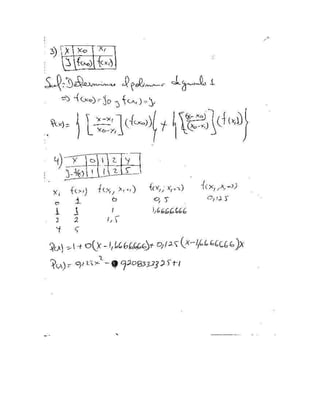 3) x x0 x1
y f(x0) f(x1)
Sol: Determinar el polinomio de grado 1
=> f(x0)=y0 y f(x1)=y1
P(x)= { [ x-x1 / x0-x1 ] (f(x0)) } + { [ (x-x0) / (x0-x1) ] (f(x1)) }
4) x 0 1 2 4
y=f(x) 1 1 2 5
xi f(xi) f(xi, xi-1) f(xi, xi-2) f(xi, xi-3)
0 1 0 0,5 0,125
1 1 1 1,6666666
2 2 1,5
4 5
P(x)=1+0(x-1,6666666)+0,125(x-1,6666666)x
P(x)=0,125x²-0,208333325+1